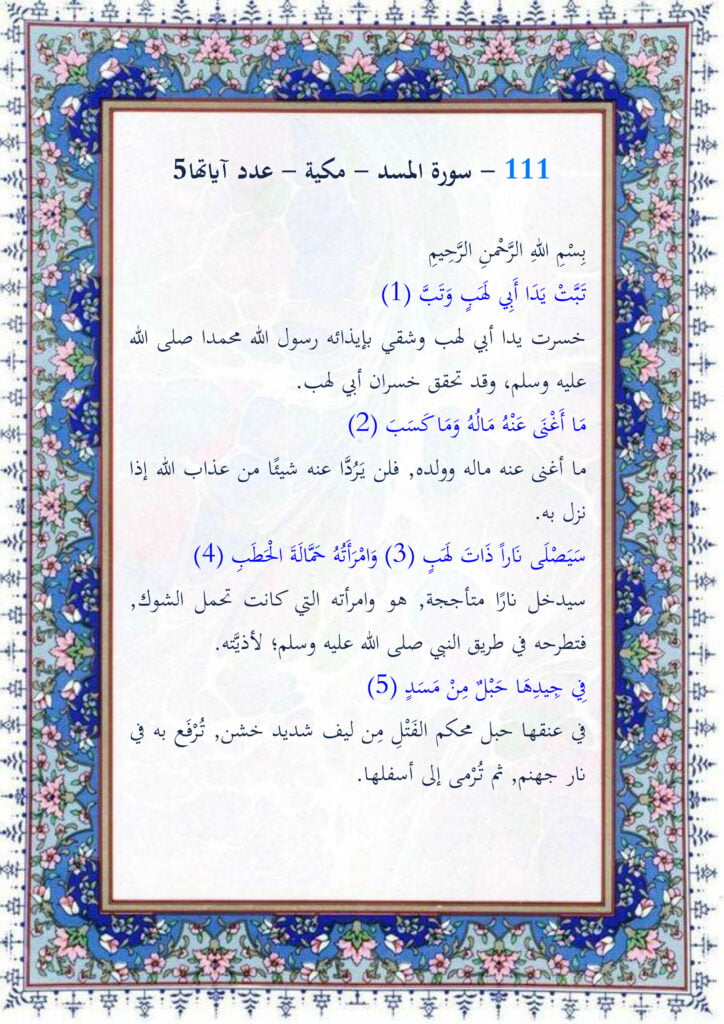 111 – سورة المسد – مكية – عدد آياتها5
بِسْمِ اللهِ الرَّحْمنِ الرَّحِيمِ
تَبَّتْ يَدَا أَبِي لَهَبٍ وَتَبَّ (1)
خسرت يدا أبي لهب وشقي بإيذائه رسول الله محمدا صلى الله
عليه وسلم، وقد تحقق خسران أبي لهب.
مَا أَغْنَى عَنْهُ مَالُهُ وَمَا كَسَبَ (2)
ما أغنى عنه ماله وولده, فلن يَرُدَّا عنه شيئًا من عذاب الله إذا
نزل به.
سَيَصْلَى نَاراً ذَاتَ لَهَبٍ (3) وَامْرَأَتُهُ حَمَّالَةَ الْحَطَبِ (4)
سيدخل نارًا متأججة, هو وامرأته التي كانت تحمل الشوك,
فتطرحه في طريق النبي صلى الله عليه وسلم؛ لأذيَّته.
فِي جِيدِهَا حَبْلٌ مِنْ مَسَدٍ (5)
في عنقها حبل محكم الفَتْلِ مِن ليف شديد خشن, تُرْفَع به في
نار جهنم, ثم تُرْمى إلى أسفلها.